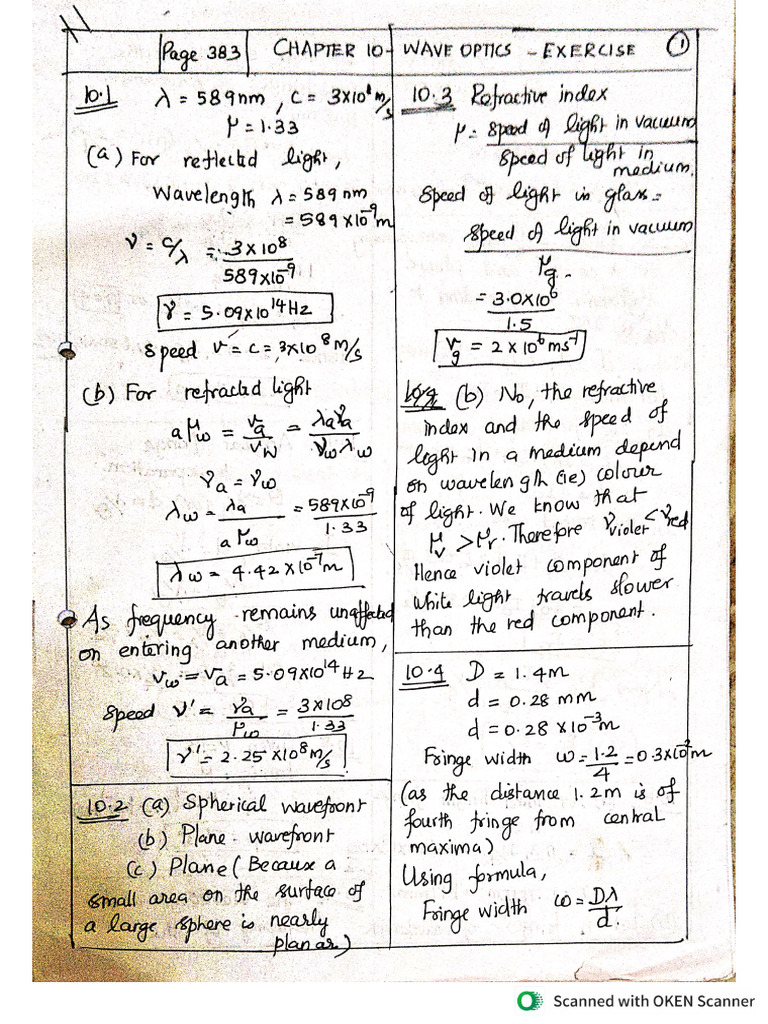 Page 383
CHAPTER 10 - WAVE OPTICS - EXERCISE
1
10.1 λ = 589nm, C = 3x10⁸ m/s
μ = 1.33
(a) For reflected light,
Wavelength λ = 589 nm
= 589 x10⁻⁹ m
ν = c/λ = 3x10⁸ / 589x10⁻⁹
ν = 5.09x10¹⁴Hz
Speed v = c = 3x10⁸ m/s
(b) For refracted light
aμw = va/vw = λaνa/νwλw
νa = νw
λw = λa/aμw = 589x10⁻⁹/1.33
λw = 4.42x10⁻⁷m
As frequency remains unaffected
on entering another medium,
νw = νa = 5.09x10¹⁴Hz
Speed v' = va/μw = 3x108/1.33
v' = 2.25x10⁸m/s
10.2 (a) Spherical wavefront
(b) Plane wavefront
(c) Plane (Because a
small area on the surface of
a large sphere is nearly
planar)
10.3 Refractive index
μ = speed of light in vacuum
speed of light in
medium.
Speed of light in glass =
speed of light in vacuum
μg
= 3.0x10⁶
1.5
vg = 2x10⁶ ms⁻¹
(b) No, the refractive
index and the speed of
light in a medium depend
on wavelength (ie) colour
of light. We know that
μv > μr. Therefore νviolet < νred
Hence violet component of
white light travels slower
than the red component.
10.4 D = 1.4m
d = 0.28 mm
d = 0.28 x10⁻³m
Fringe width ω = 1.2/4 = 0.3x10⁻²m
(as the distance 1.2m is of
fourth fringe from central
maxima)
Using formula,
Fringe width ω = Dλ/d.
Scanned with OKEN Scanner